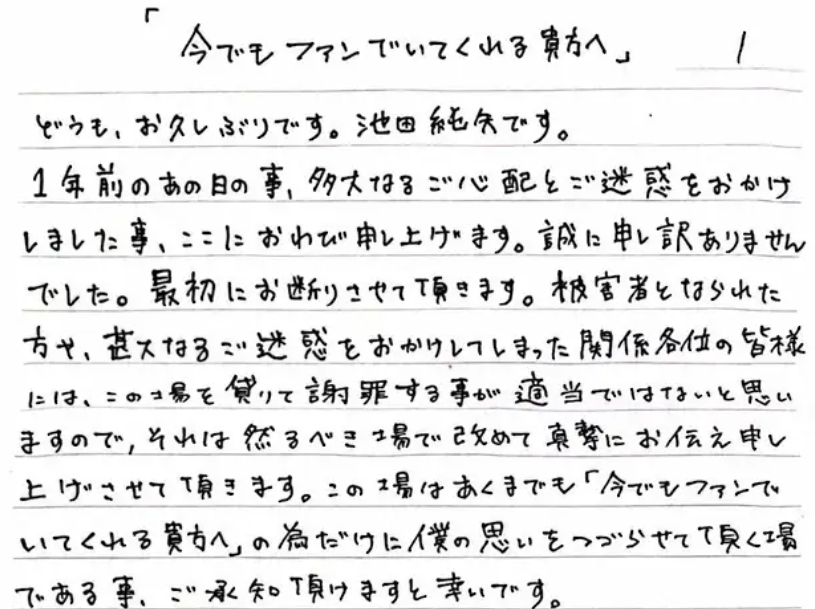 「今でもファンでいてくれる貴方へ」 1
どうも、お久しぶりです。池田純矢です。
1年前のあの日の事、多大なるご心配とご迷惑をおかけ
しました事、ここにおわび申し上げます。誠に申し訳ありません
でした。最初にお断りさせて頂きます。被害者となられた
方や、甚大なるご迷惑をおかけしてしまった関係各位の皆様
には、この場を貸りて謝罪する事が適当ではないと思い
ますので、それは然るべき場で改めて真摯にお伝え申し
上げさせて頂きます。この場はあくまでも「今でもファンで
いてくれる貴方へ」の為だけに僕の思いをつづらせて頂く場
である事、ご承知頂けますと幸いです。